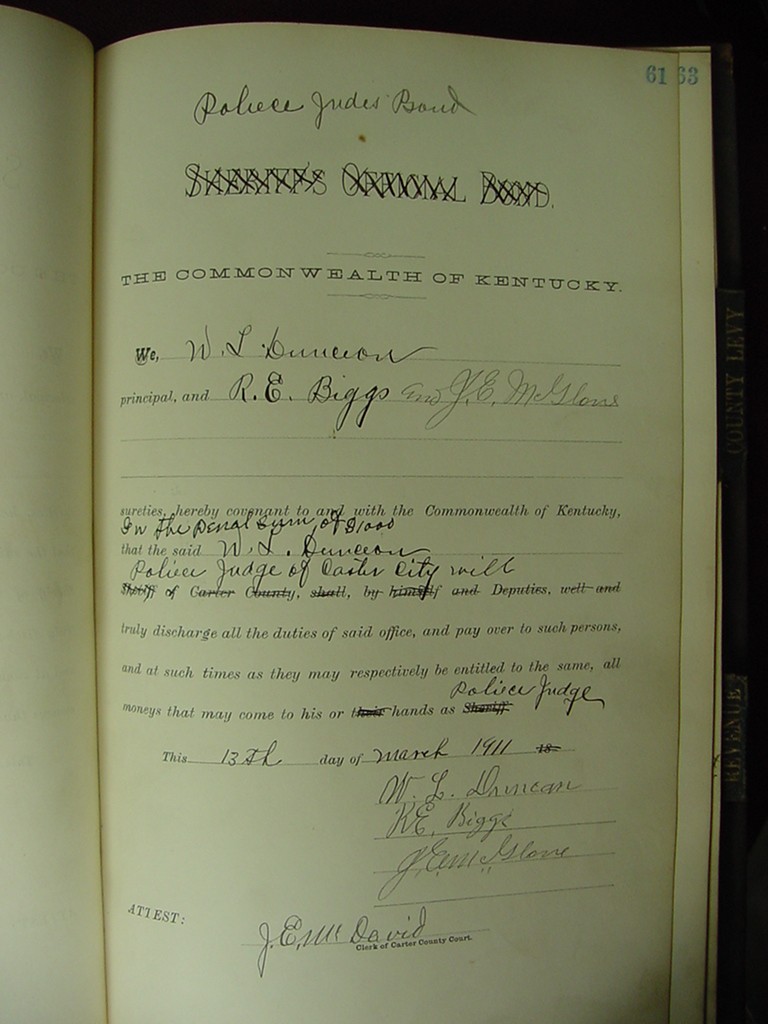 61 63
Police Judes Bond
SHERIFF'S OFFICIAL BOND.
THE COMMONWEALTH OF KENTUCKY.
We, W. L. Duncan
principal, and R. E. Biggs and J. E. McGlone
sureties, hereby covenant to and with the Commonwealth of Kentucky,
In the penal sum of $1000
that the said W. L. Duncan
Police Judge of Carter City will
Sheriff of Carter County, shall, by himself and Deputies, well and
truly discharge all the duties of said office, and pay over to such persons,
and at such times as they may respectively be entitled to the same, all
Police Judge
moneys that may come to his or their hands as Sheriff.
This 13th day of March 1911 18
W. L. Duncan
R.E. Biggs
J.E. McGlone
ATTEST:
J.E. McDavid
Clerk of Carter County Court.
COUNTY LEVY
REVENUE